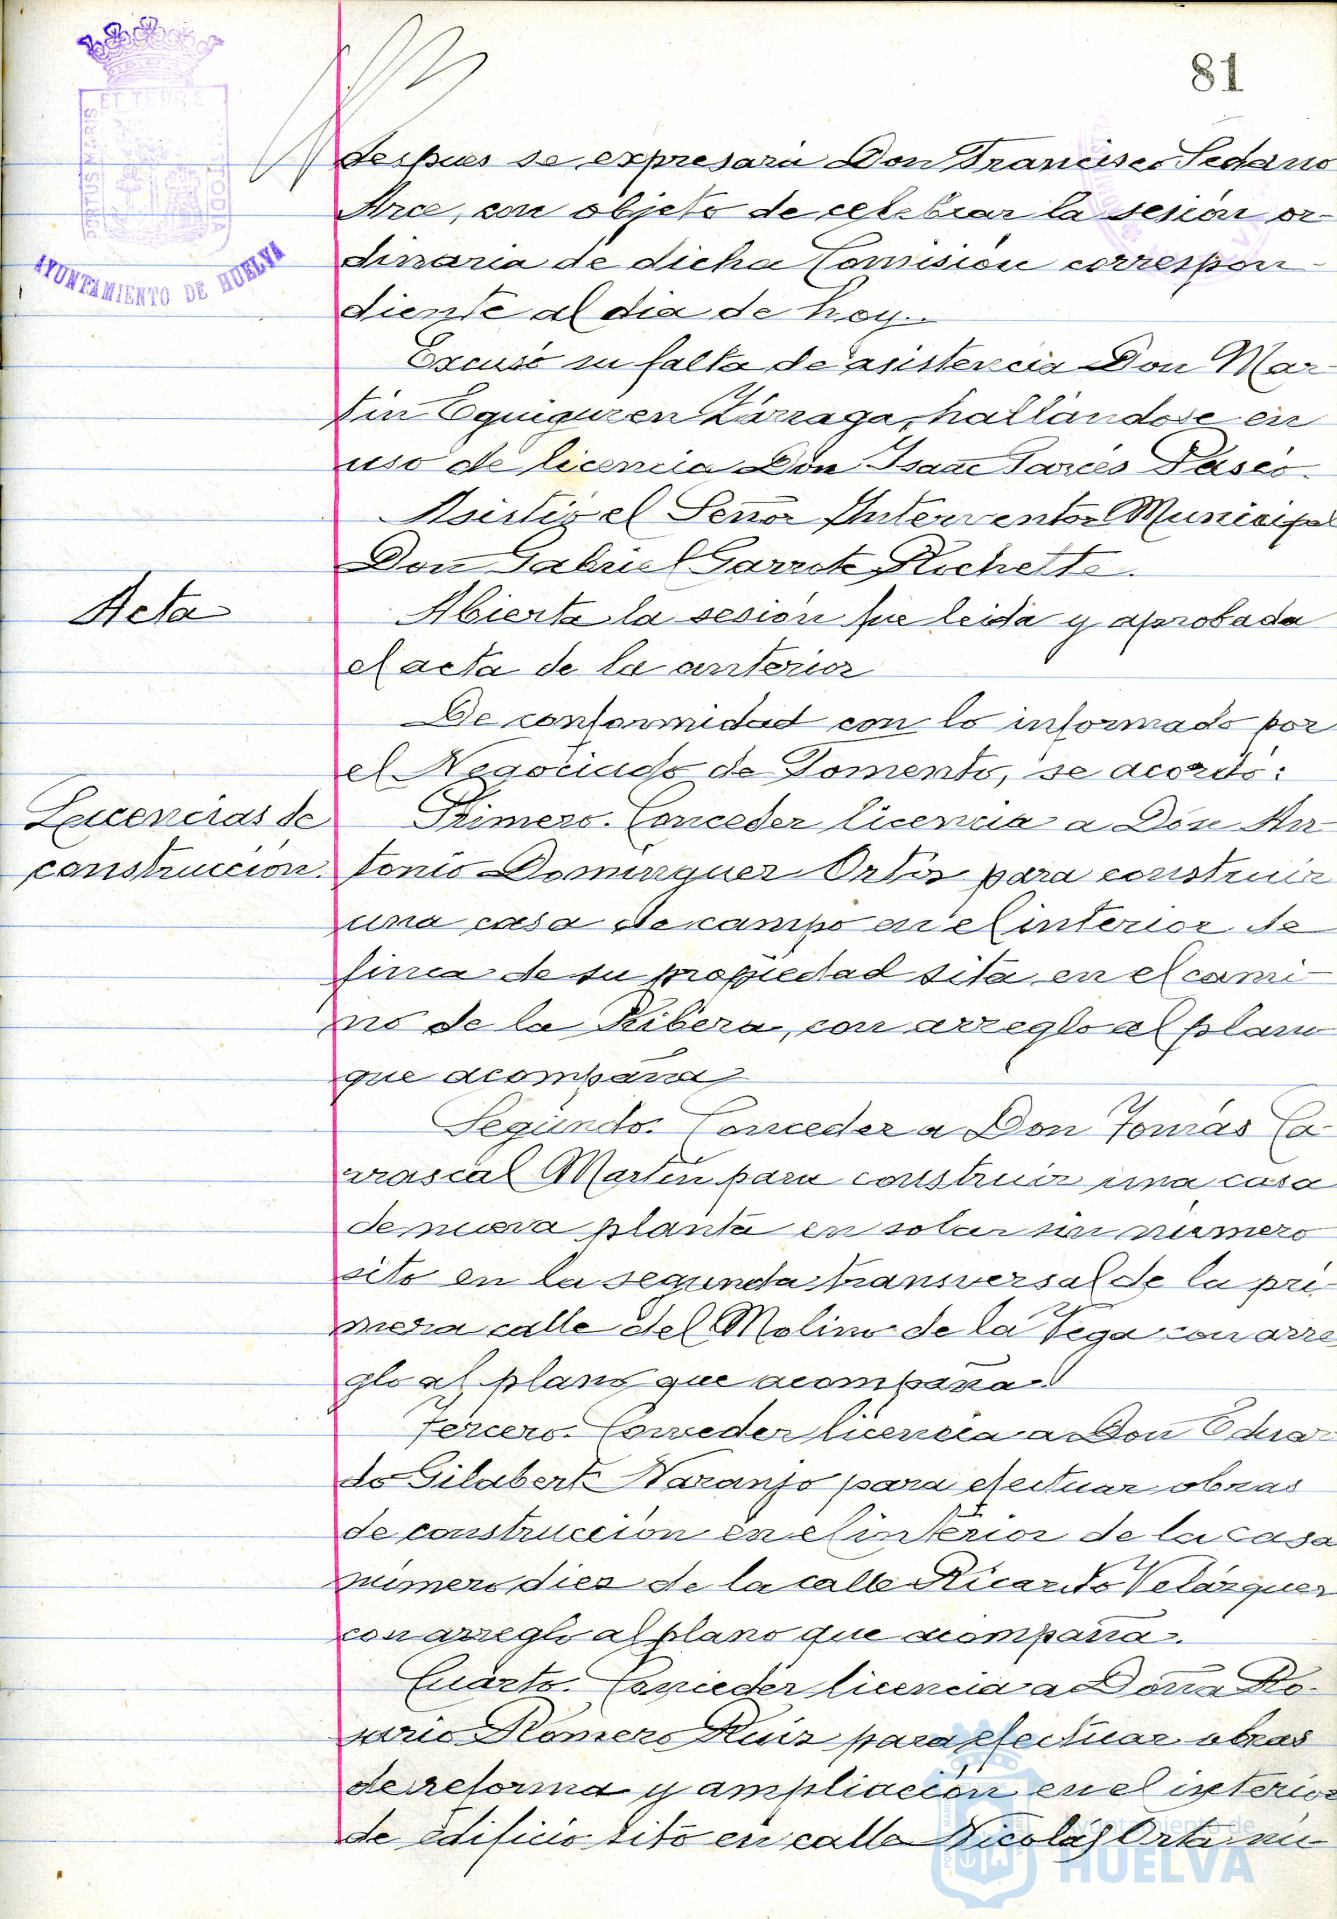 81
ET TERRÆ
PORTUS MARIS
AYUNTAMIENTO DE HUELVA
despues se expresará Don Francisco Sedano
Arce, con objeto de celebrar la sesión or-
dinaria de dicha Comisión correspon-
diente al dia de hoy.
Excusó su falta de asistencia Don Mar-
tin Eguiguren Zárraga, hallándose en
uso de licencia Don Isaac Garcés
Asistió el Señor Interventor Municipal
Don Gabriel Garrote Rochette.
Acta
Abierta la sesión fue leida y aprobada
el acta de la anterior
De conformidad con lo informado por
el Negociado de Fomento, se acordó:
Licencias de
construcción.
Primero. Conceder licencia a Don An-
tonio Dominguez Ortiz para construir
una casa de campo en el interior de
finca de su propiedad sita en el cami-
no de la Ribera, con arreglo al plano
que acompaña
Segundo. Conceder a Don Tomás Ca-
rrascal Martín para construir una casa
de nueva planta en solar sin número
sito en la segunda transversal de la pri-
mera calle del Molino de la Vega con arre
glo al plano que acompaña.
Tercero. Conceder licencia a Don Eduar
do Gilabert Naranjo para efectuar obras
de construcción en el interior de la casa
número diez de la calle Ricardo Velázquez
con arreglo al plano que acompaña.
Cuarto. Conceder licencia a Doña Ro-
sario Romero Ruiz para efectuar obras
de reforma y ampliación en el interior
de edificio sito en calle Nicolas Orta nú-
Ayuntamiento de
HUELVA